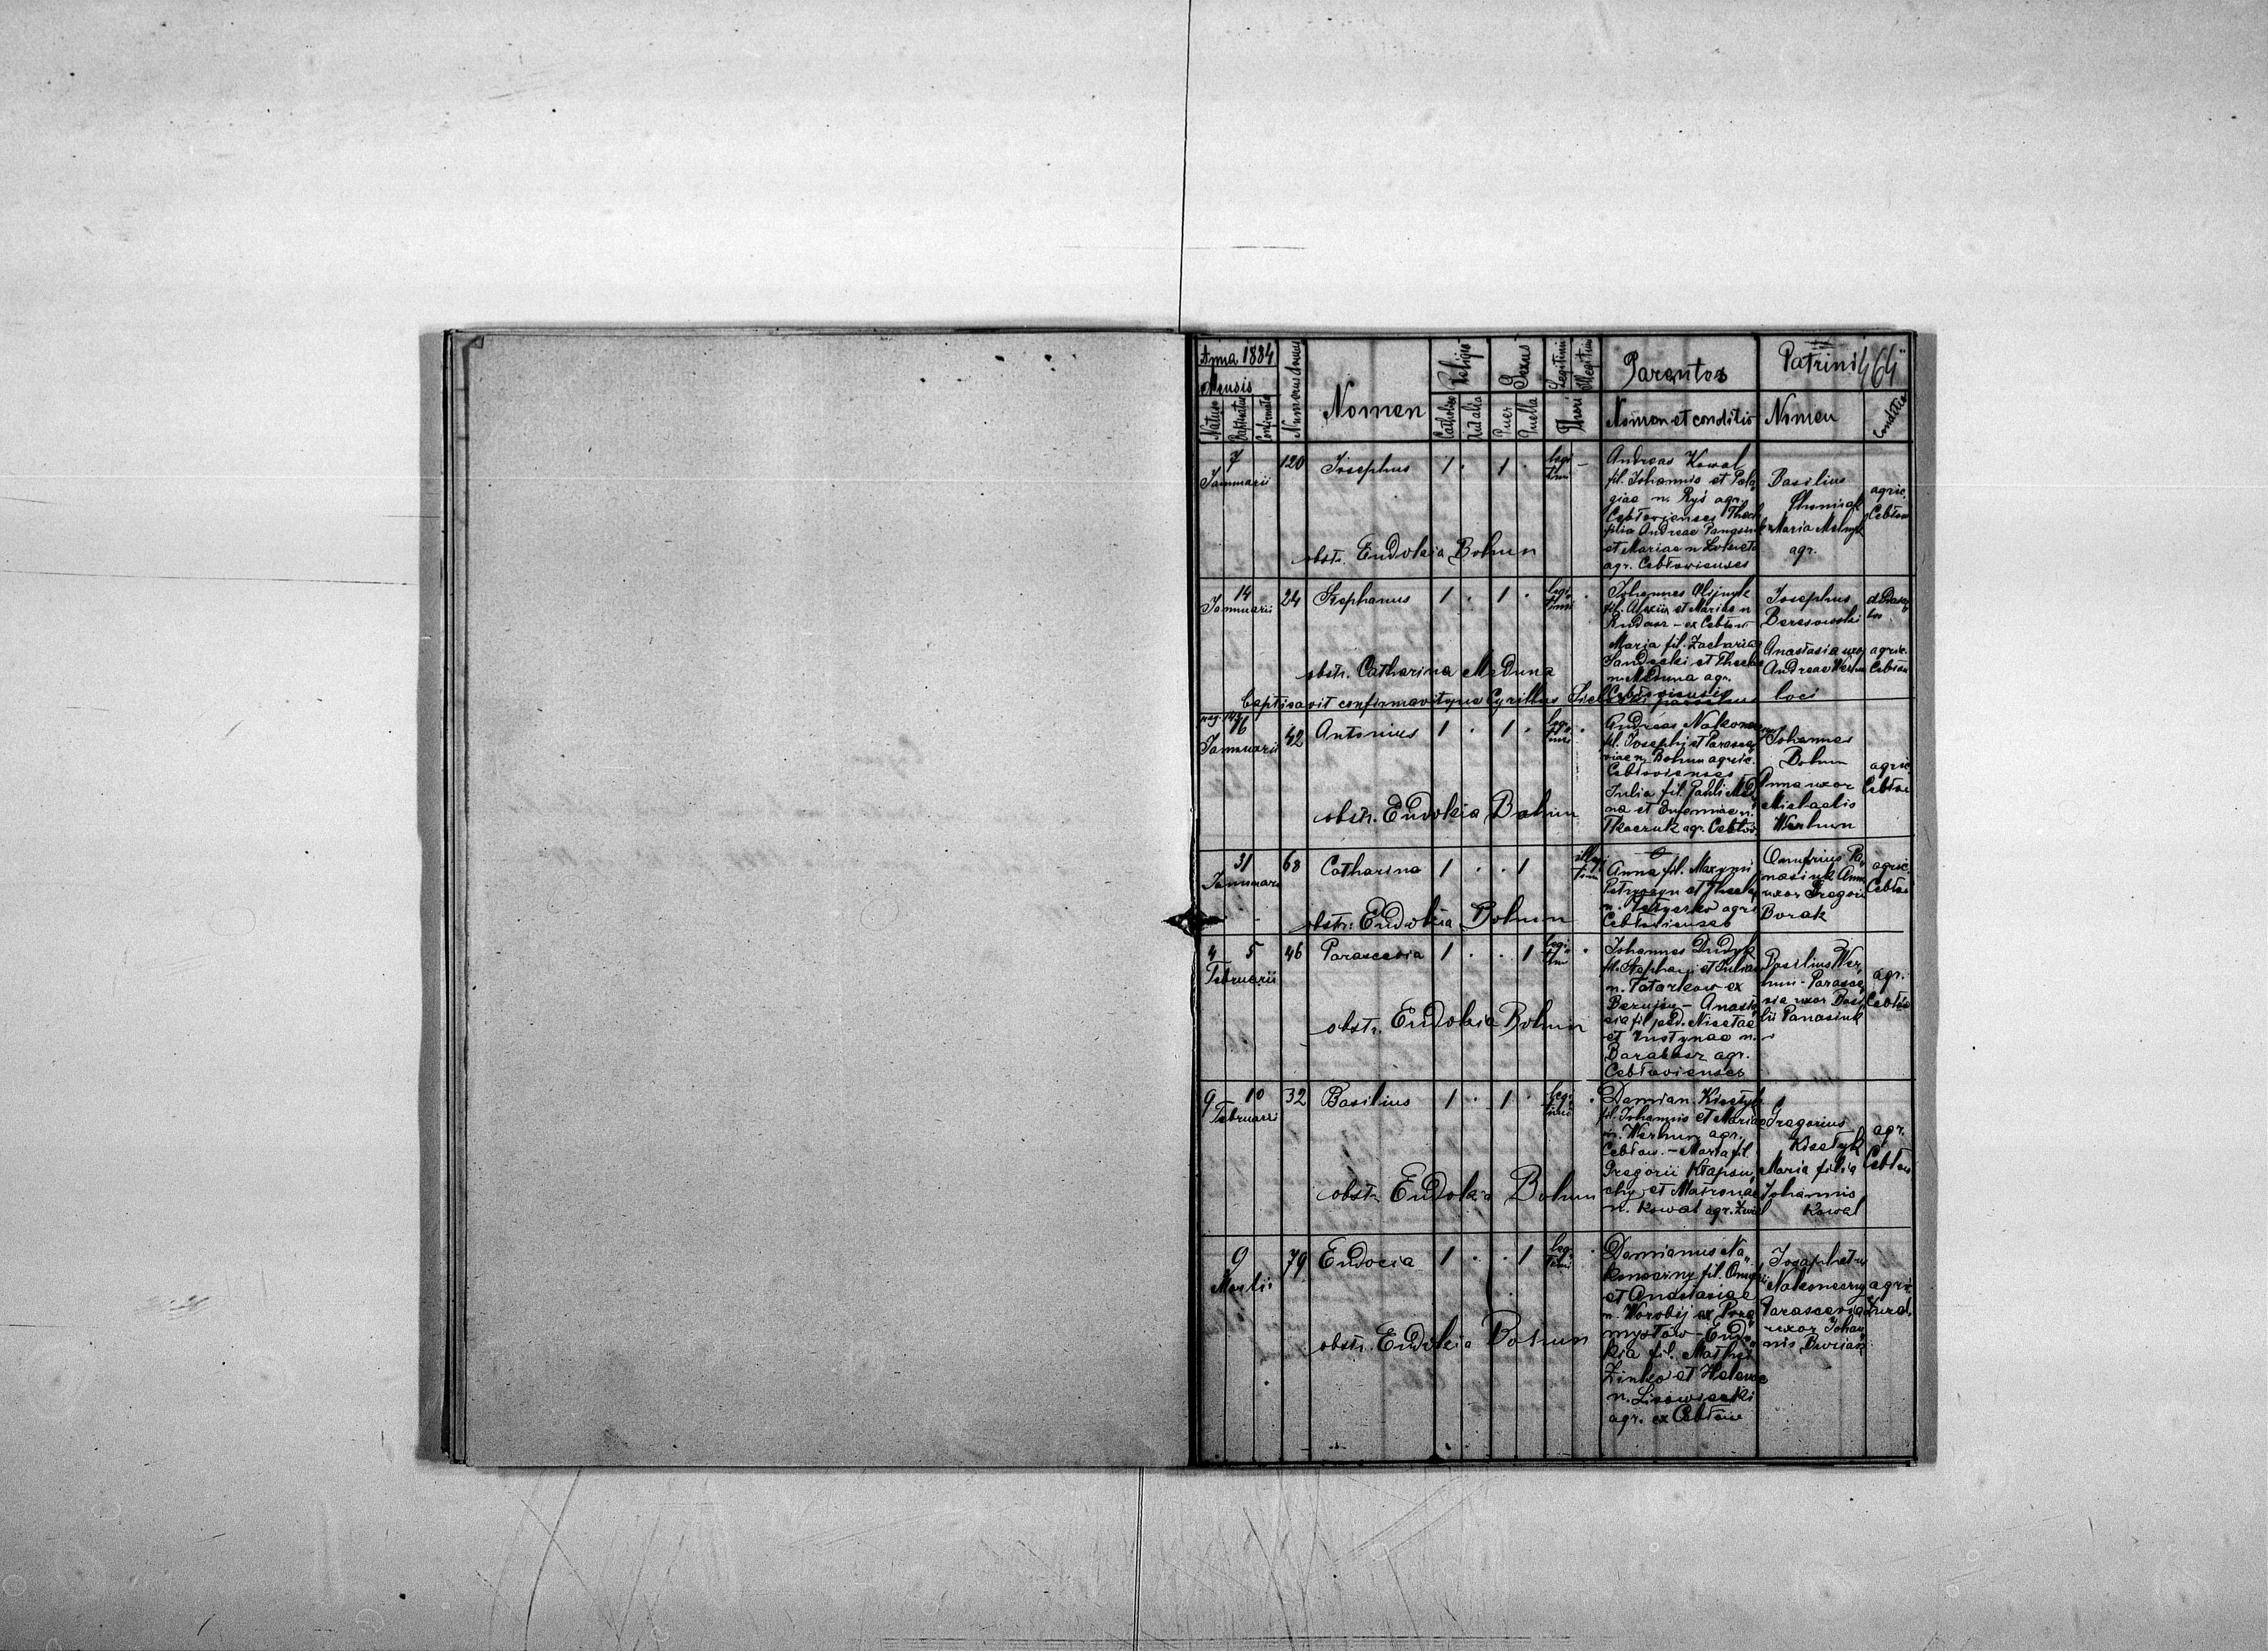 Anna 1884
Mensis
Natus
Baptisatus
Confirmatus
Numerus domus
Nomen
Religio
Catholica
Aut alia
Sexus
Puer
Puella
Legitimi
Illegitimi
Thori
Parentes
Nomen et conditio
Patrini
Nomen
Conditio
464
7
Januarii
120
Josephus
1 . 1 .
legi
timi
–
Andreas Kowal
fil. Johannis et Pela
giae n. Ryś agr.
Cebłovienses Thecla
filia Andreae
et Mariae n.
agr. Cebłovienses
Basilius
Maria Melnyk
agr.
agric.
Cebłow
obstr. Eudokia Bohun
14
Januarii
24
Stephanus
1 . 1 .
legi
timi
Johannes Olijnyk
fil. Alexii et Mariae n
ex Cebłow
Maria fil. Zachariae
Sandecki et Theclae
n. Meduna agr.
Cebłoviensis
Josephus
Beresowski
Anastasia uxor
Andreae Werhun
agric.
Cebłow
obstr. Catharina Meduna
baptisavit confirmavitque Cyrillus parochus loci
16
Januarii
42
Antonius
1 . 1 .
legi
timi
Andreas Nakoneczny
fil. Josephi et Parasce
viae n. Bohun agric.
Cebłovienses
Julia fil. Pauli Medu
na et Eufemiae n.
Tkaczuk agr. Cebłov.
Johannes
Bohun
Anna uxor
Michaelis
Werhun
agric.
Cebłow
obstr. Eudokia Bohun
31
Januarii
68
Catharina
1 . . 1
illegi
timi
Anna fil. Maxymi
et Theclae
n. agr.
Cebłovienses
Onufrius Pa
nasiuk Anna
uxor Gregorii
Borak
agric.
Cebłow
obstr. Eudokia Bohun
4 5
Februarii
46
Parascevia
1 . . 1
legi
timi
Johannes Dudyk
fil. Stephani et Julian
n. Tatarkow ex
Anasta
sia fil. Nicetae
et Justynae n.
Barabasz agr.
Cebłovienses
Basilius Wer
hun - Parasce
via uxor Basi
lii Panasiuk
agr.
Cebłow
obstr. Eudokia Bohun
9 10
Februarii
32
Basilius
1 . 1 .
legi
timi
Damian Kisełyk
fil. Johannis et Mariae
n. Werhun agr.
Cebłow. – Maria fil.
Gregorii Kłapou
chy et Matronae
n. Kowal agr.
Gregorius
Kisełyk
Maria filia
Johannis
Kowal
agr.
Cebłow
obstr. Eudokia Bohun
9
Martii
79
Eudocia
1 . . 1
legi
timi
Damianus Na
koneczny fil. Onufrii
et Anastasiae
n. Worobij ex Pere
mysłow – Eudo
kia fil. Mathei
Zinko et Helenae
n. Lisowiecki
agr. ex Cebłow
Josaphatus
Nakoneczny
Parascevia
uxor Johan
nis Burian
agr.
obstr. Eudokia Bohun